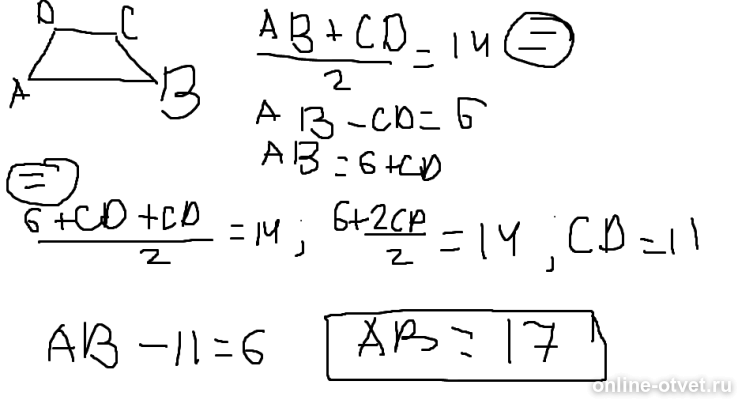 D C
A B
AB + CD / 2 = 14 =
AB - CD = 6
AB = 6 + CD
=
6 + CD + CD / 2 = 14 ; 6 + 2CD / 2 = 14 , CD = 11
AB - 11 = 6
AB = 17
online-otvet.ru